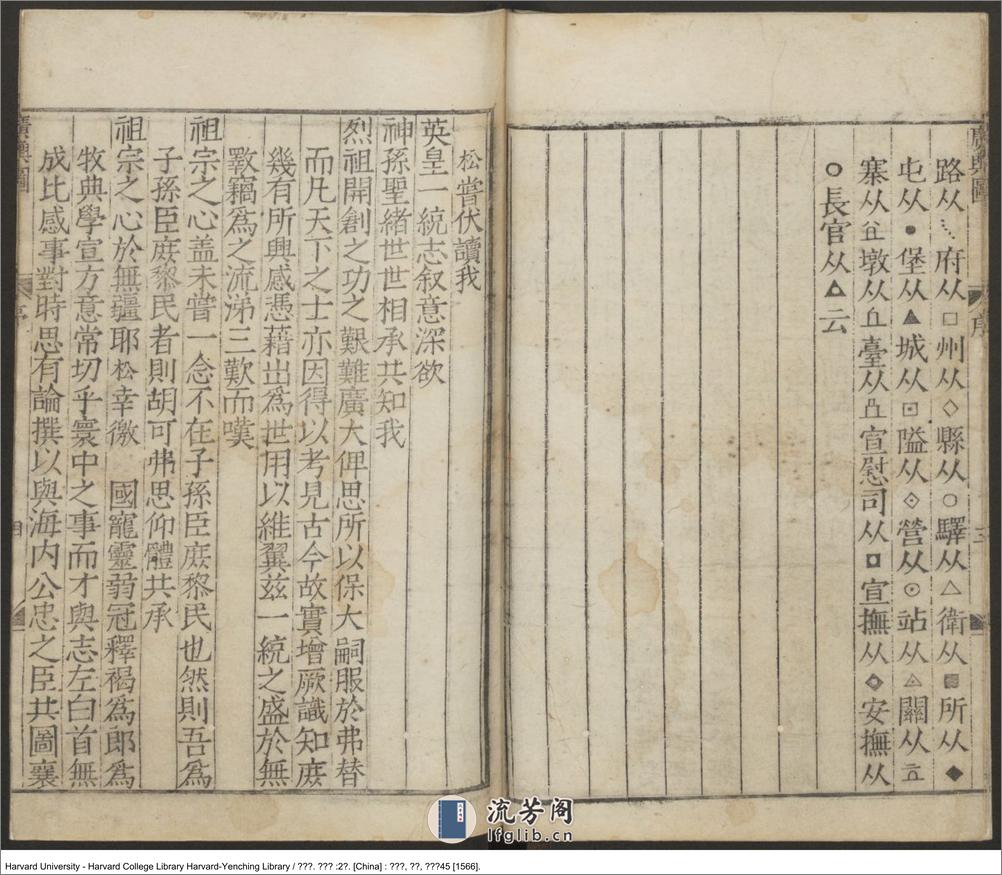 廣輿圖
序
路从⋰府从□州从◇縣从○驛从△衛从■所从◆
屯从●堡从▲城从⊡隘从◈營从⊙站从◬關从
寨从墩从臺从宣慰司从◘宣撫从◈安撫从
○長官从△云
松嘗伏讀我
英皇一統志叙意深欲
神孫聖緒世世相承共知我
烈祖開創之功之艱難廣大俾思所以保大嗣服於弗替
而凡天下之士亦因得以考見古今故實增厥識知庶
幾有所興感憑藉出爲世用以維翼兹一統之盛於無
斁竊爲之流涕三歎而嘆
祖宗之心盖未嘗一念不在子孫臣庶黎民也然則吾爲
子孫臣庶黎民者則胡可弗思仰體共承
祖宗之心於無疆耶松幸徼 國寵靈弱冠釋褐爲郎爲
牧典學宣方意常切乎寰中之事而才與志左白首無
成比感事對時思有論撰以與海内公忠之臣共圖襄
廣輿圖
流芳阁
lfglib.cn
Harvard University - Harvard College Library Harvard-Yenching Library / ???. ??? :2?. [China] : ???, ??, ???45 [1566].